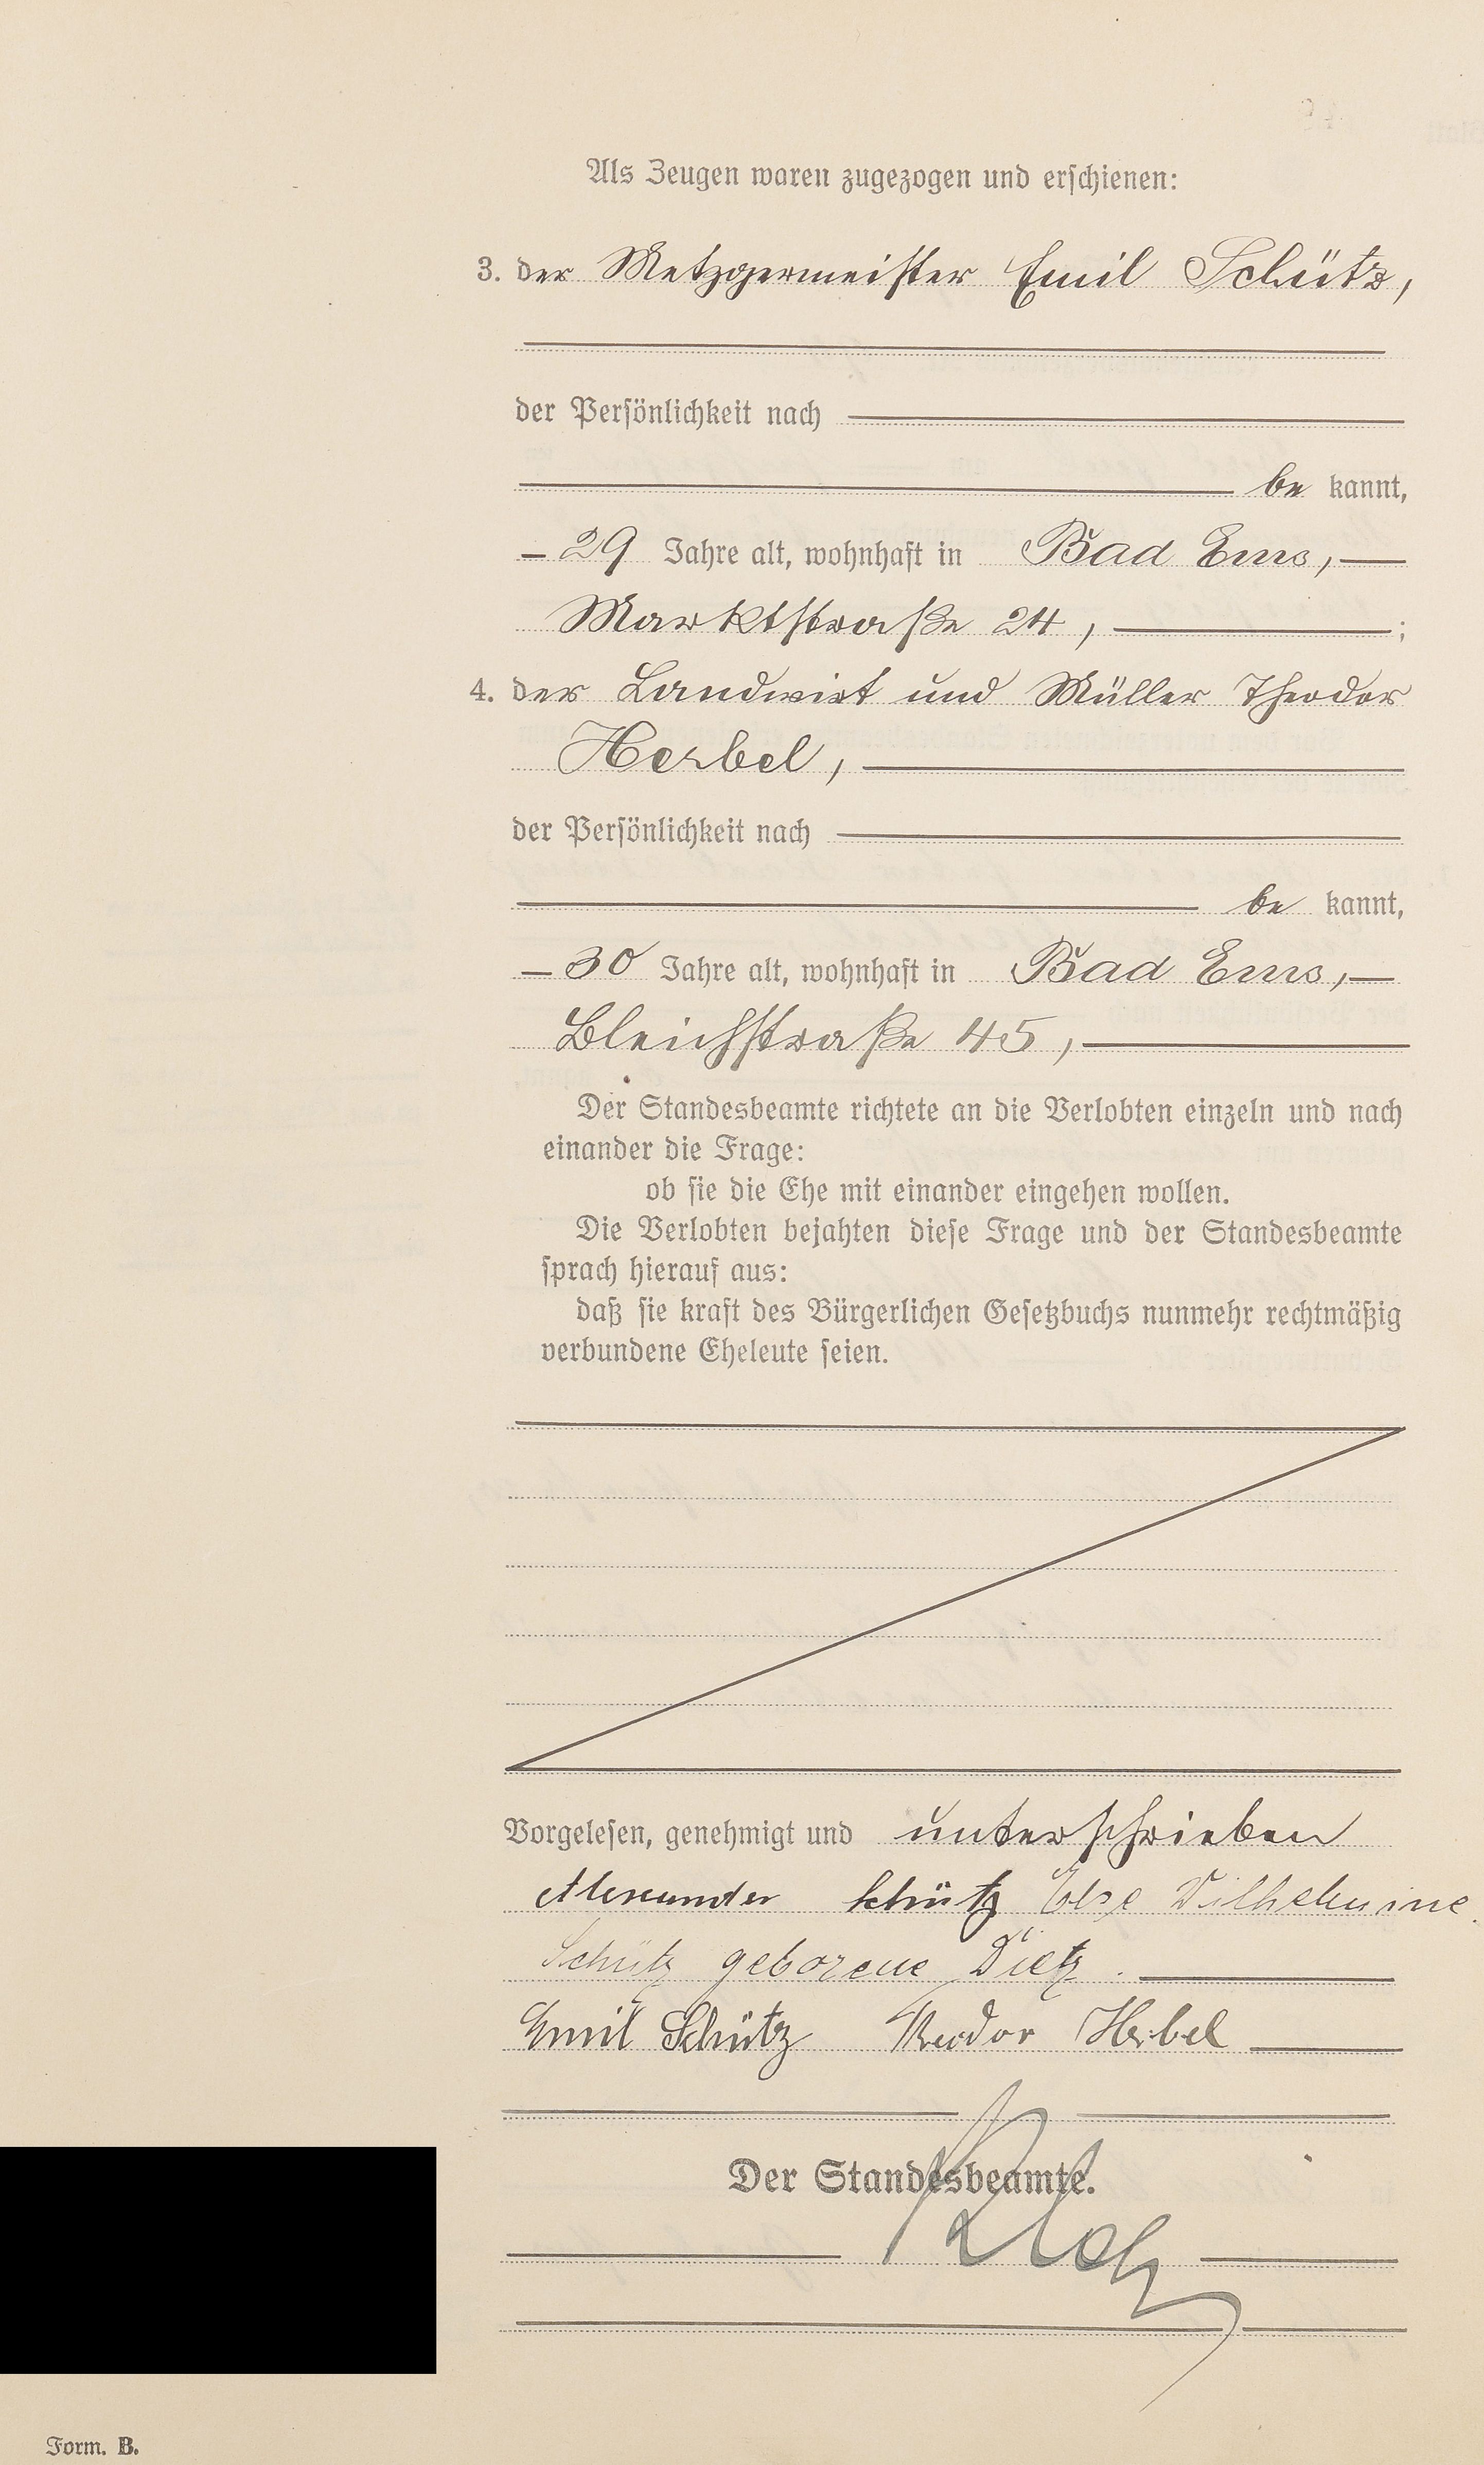 Als Zeugen waren zugezogen und erschienen:
3. der Metzgermeister Emil Schütz,
der Persönlichkeit nach
be kannt,
29 Jahre alt, wohnhaft in Bad Ems,
Marktstraße 24, ;
4. der Landwirt und Müller Theodor
Herbel,
der Persönlichkeit nach
be kannt,
30 Jahre alt, wohnhaft in Bad Ems,
Bleichstraße 45,
Der Standesbeamte richtete an die Verlobten einzeln und nach
einander die Frage:
ob sie die Ehe mit einander eingehen wollen.
Die Verlobten bejahten diese Frage und der Standesbeamte
sprach hierauf aus:
daß sie kraft des Bürgerlichen Gesetzbuchs nunmehr rechtmäßig
verbundene Eheleute seien.
Vorgelesen, genehmigt und unterschrieben
Alexander Schütz Else Wilhelmine
Schütz geborene Dietz.
Emil Schütz Theodor Herbel
Der Standesbeamte.
Form. B.